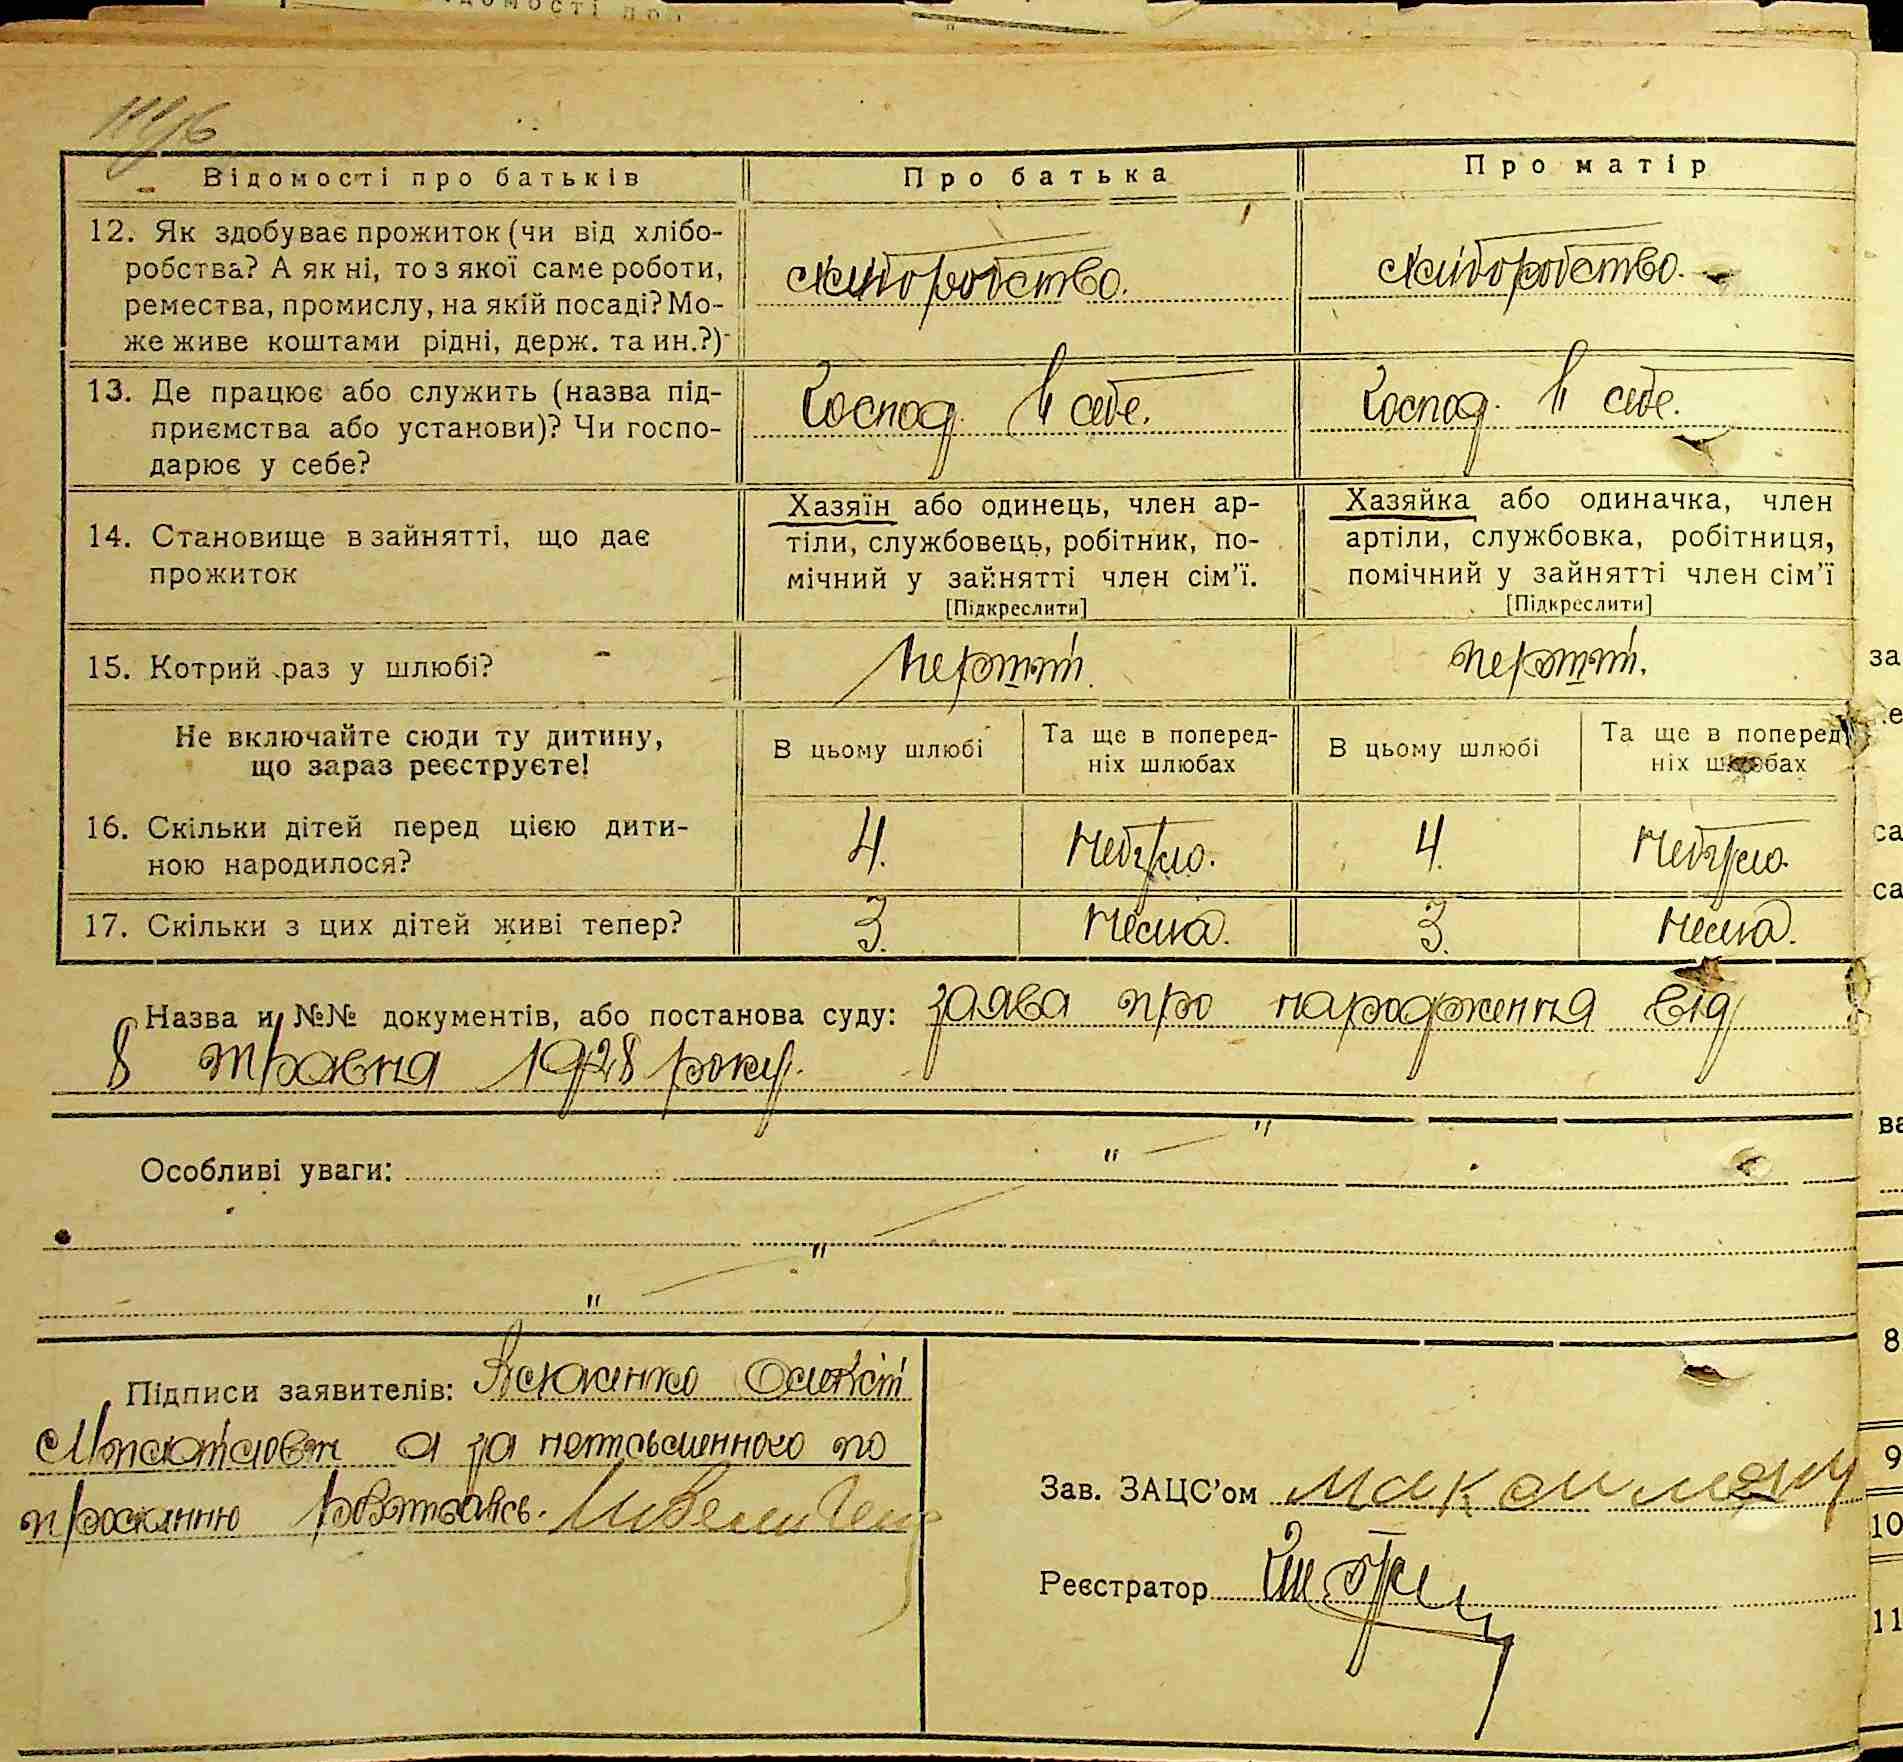 Відомості про батьків Про батька Про матір
12. Як здобуває прожиток (чи від хлібо-
робства? А як ні, то з якої саме роботи,
ремества, промислу, на якій посаді? Мо-
же живе коштами рідні, держ. та ин.?)
хліборобство. хліборобство.
13. Де працює або служить (назва під-
приємства або установи)? Чи госпо-
дарює у себе?
Господ. в себе. Господ. в себе.
14. Становище в зайнятті, що дає
прожиток
Хазяїн або одинець, член ар-
тіли, службовець, робітник, по-
мічний у зайнятті член сім’ї.
[Підкреслити]
Хазяйка або одиначка, член
артіли, службовка, робітниця,
помічний у зайнятті член сім’ї
[Підкреслити]
15. Котрий раз у шлюбі? перший. перший.
Не включайте сюди ту дитину,
що зараз реєструєте!
В цьому шлюбі
Та ще в поперед-
ніх шлюбах
В цьому шлюбі
Та ще в поперед
ніх шлюбах
16. Скільки дітей перед цією дити-
ною народилося?
4. небуло. 4. небуло.
17. Скільки з цих дітей живі тепер? 3. нема. 3. нема.
Назва и №№ документів, або постанова суду: заява про народження від
8 травня 1928 року.
Особливі уваги:
Підписи заявителів:
а за неписьменного по
проханню
Зав. ЗАЦС’ом
Реєстратор
за
са
са
ва
8
9
10
11